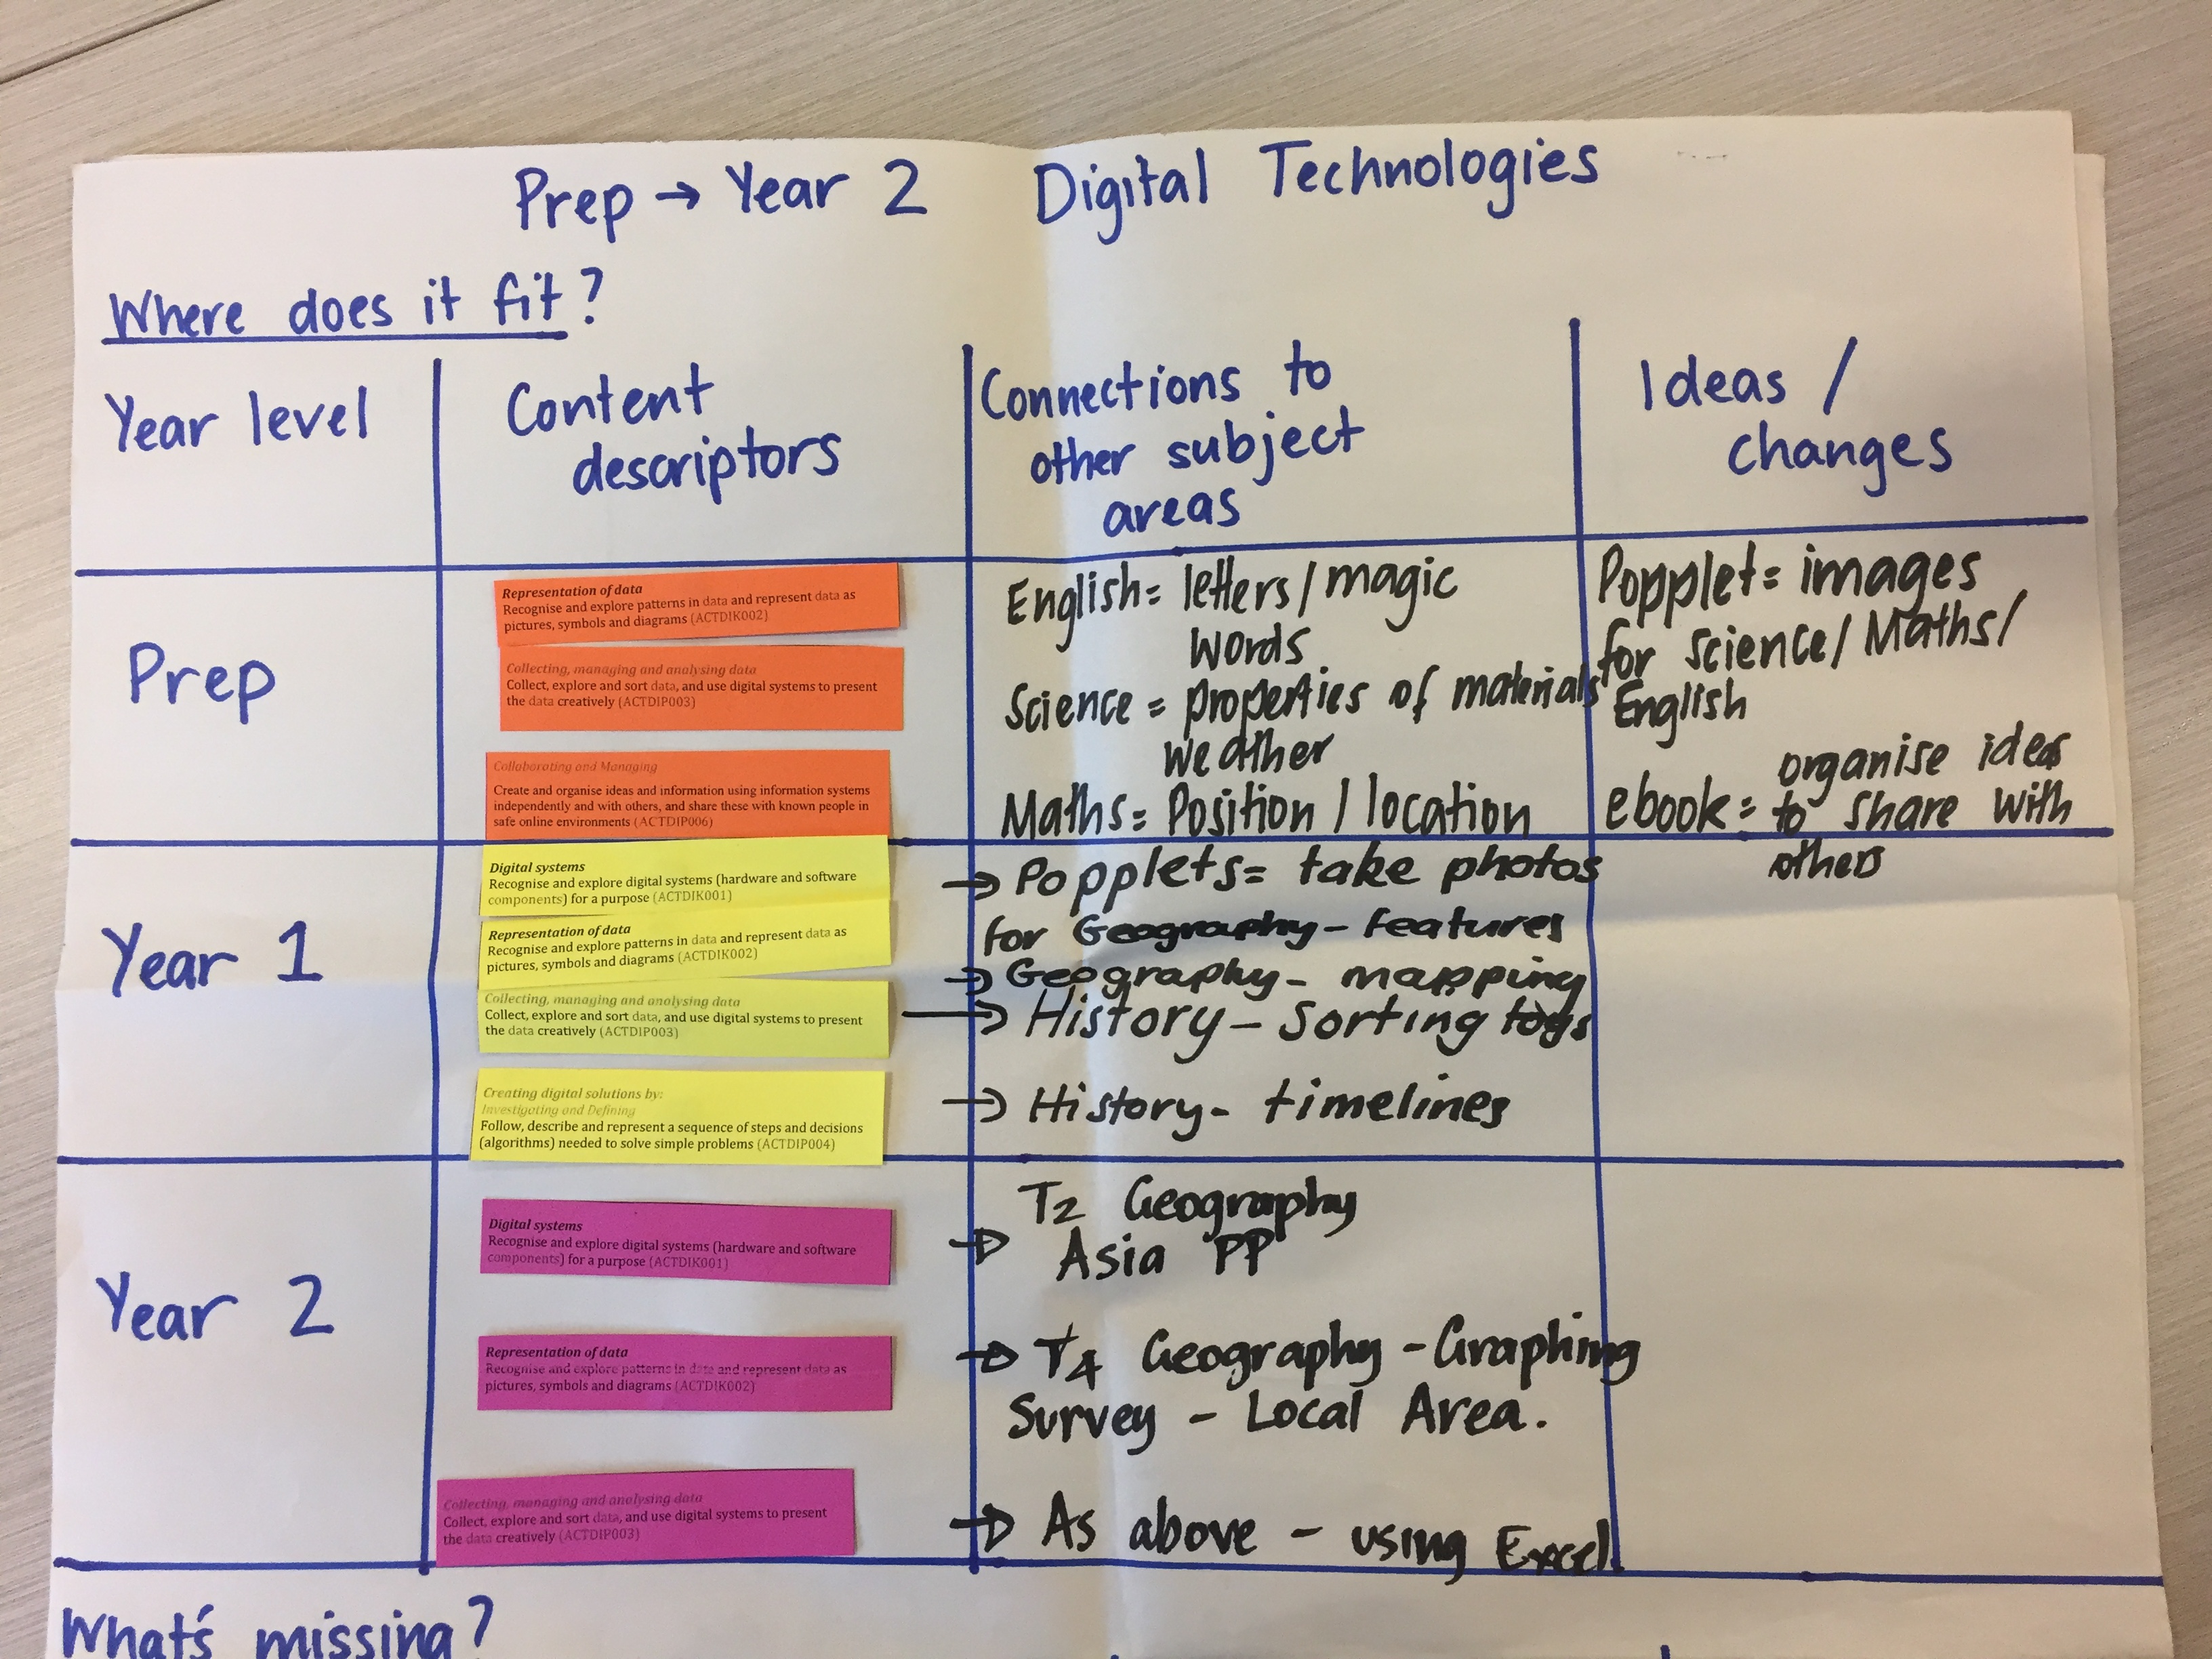 Prep → Year 2 Digital Technologies
Where does it fit?
Year level
Content
descriptors
Connections to
other subject
areas
Ideas /
changes
Prep
Representation of data
Recognise and explore patterns in data and represent data as
pictures, symbols and diagrams (ACTDIK002)
Collecting, managing and analysing data
Collect, explore and sort data, and use digital systems to present
the data creatively (ACTDIP003)
Collaborating and Managing
Create and organise ideas and information using information systems
independently and with others, and share these with known people in
safe online environments (ACTDIP006)
English = letters / magic
words
Science = properties of materials
weather
Maths = Position / location
Popplet = images
for science / Maths /
English
ebook = organise ideas
to share with
others
Year 1
Digital systems
Recognise and explore digital systems (hardware and software
components) for a purpose (ACTDIK001)
Representation of data
Recognise and explore patterns in data and represent data as
pictures, symbols and diagrams (ACTDIK002)
Collecting, managing and analysing data
Collect, explore and sort data, and use digital systems to present
the data creatively (ACTDIP003)
Creating digital solutions by:
Investigating and Defining
Follow, describe and represent a sequence of steps and decisions
(algorithms) needed to solve simple problems (ACTDIP004)
→ Popplets = take photos
for Geography - features
→ Geography - mapping
→ History - Sorting toys
→ History - timelines
Year 2
Digital systems
Recognise and explore digital systems (hardware and software
components) for a purpose (ACTDIK001)
Representation of data
Recognise and explore patterns in data and represent data as
pictures, symbols and diagrams (ACTDIK002)
Collecting, managing and analysing data
Collect, explore and sort data, and use digital systems to present
the data creatively (ACTDIP003)
T2 Geography
→ Asia PP
→ T4 Geography - Graphing
Survey - Local Area.
→ As above - using Excel.
What's missing?